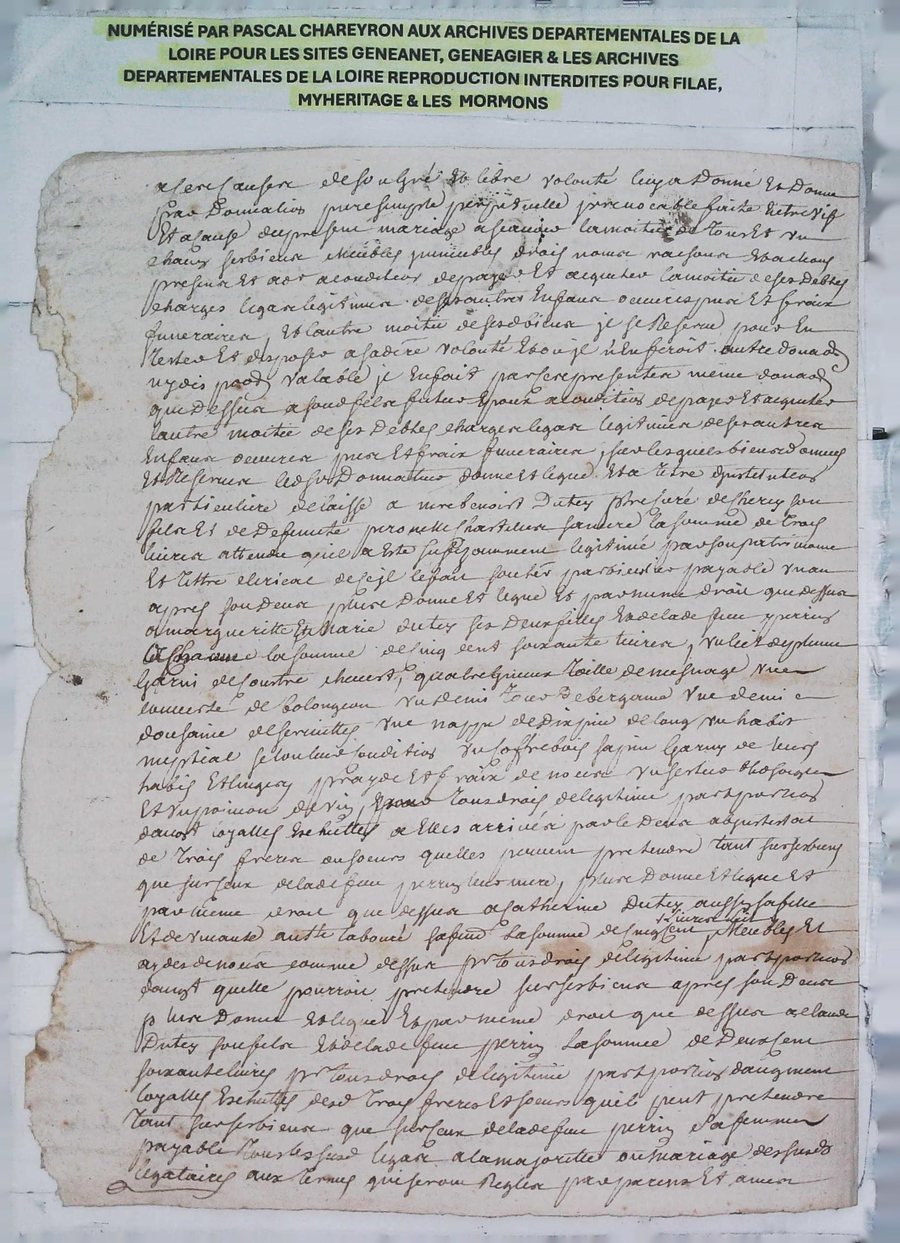 NUMÉRISÉ PAR PASCAL CHAREYRON AUX ARCHIVES DEPARTEMENTALES DE LA
LOIRE POUR LES SITES GENEANET, GENEAGIER & LES ARCHIVES
DEPARTEMENTALES DE LA LOIRE REPRODUCTION INTERDITES POUR FILAE,
MYHERITAGE & LES MORMONS
de son gré et libre volonté luy a donné et donne
par donnation pure simple perpetuelle yrrevocable faitte entre vifs
et a cause du present mariage a scavoir la moitié de tous et un
chacun ses biens meubles immeubles drois noms raisons et actions
presens et a condition de payer et acquiter la moitié de ses debtes
charges legas legitimes de ses autres enfans oeuvres pies et fraix
funeraires, et l'autre moitié de ses biens je se reserve pour en
tester et disposer a sa dere volonté et ou je n'en feroit autre
valable je en fait par ces presentes meme
que dessus a son filz futur epoux a condition de payer et acquiter
l'autre moitié de ses debtes charges legas legitimes de ses autres
enfans oeuvres pies et fraix funeraires, sur lesquels biens donnes
et reserves led donnateur donne et legue et a titre d'institution
particuliere delaisse a mre benoist Dutey son
filz et de deffunte sa mere la somme de trois
livres attendu qu'il a esté suffizamment legitimé par son patrimoine
et tittre clerical payable un an
apres son deces plus donne et legue et par meme droit que dessus
a margueritte et marie dutey ses deux filles et de lade feue perrin
la somme de cinq cent soixante livres, un lict de plume
garni de coustre chevest, quatre linceux toille de mesnage une
couverte de un demi tour de bergame une demi
dousaine de serviettes une nappe de dix pieds de long un habit
nuptial selon leur condition un coffre bois sapin garny de leurs
habis et linges, et fraix de noces
et un poincon de vin, tous drois de legitime part portion
a elles arrivés par le deces
de trois freres ou soeurs quelles peuvent pretendre tant sur ses biens
que sur ceux de lade feue perrin leur mere, plus donne et legue et
par meme droit que dessus a catherine Dutey aussy sa fille
et de vivante sa fme la somme de livres lict meubles et
de noces comme dessus pr tous drois de legitime part portion
quelle pourroit pretendre sur ses biens apres son deces
plus donne et legue et par meme droit que dessus a claude
Dutey son filz et de lade feue perrin la somme de deux cent
soixante livres pr tous drois de legitime part portion d'augment
desd trois freres et soeurs quil peut pretendre
tant sur ses biens que sur ceux de lade feue perrin sa femme
payable tous les susd legas a la majorité ou mariage des susds
legataires aux termes qui seront reglés par parens et amis